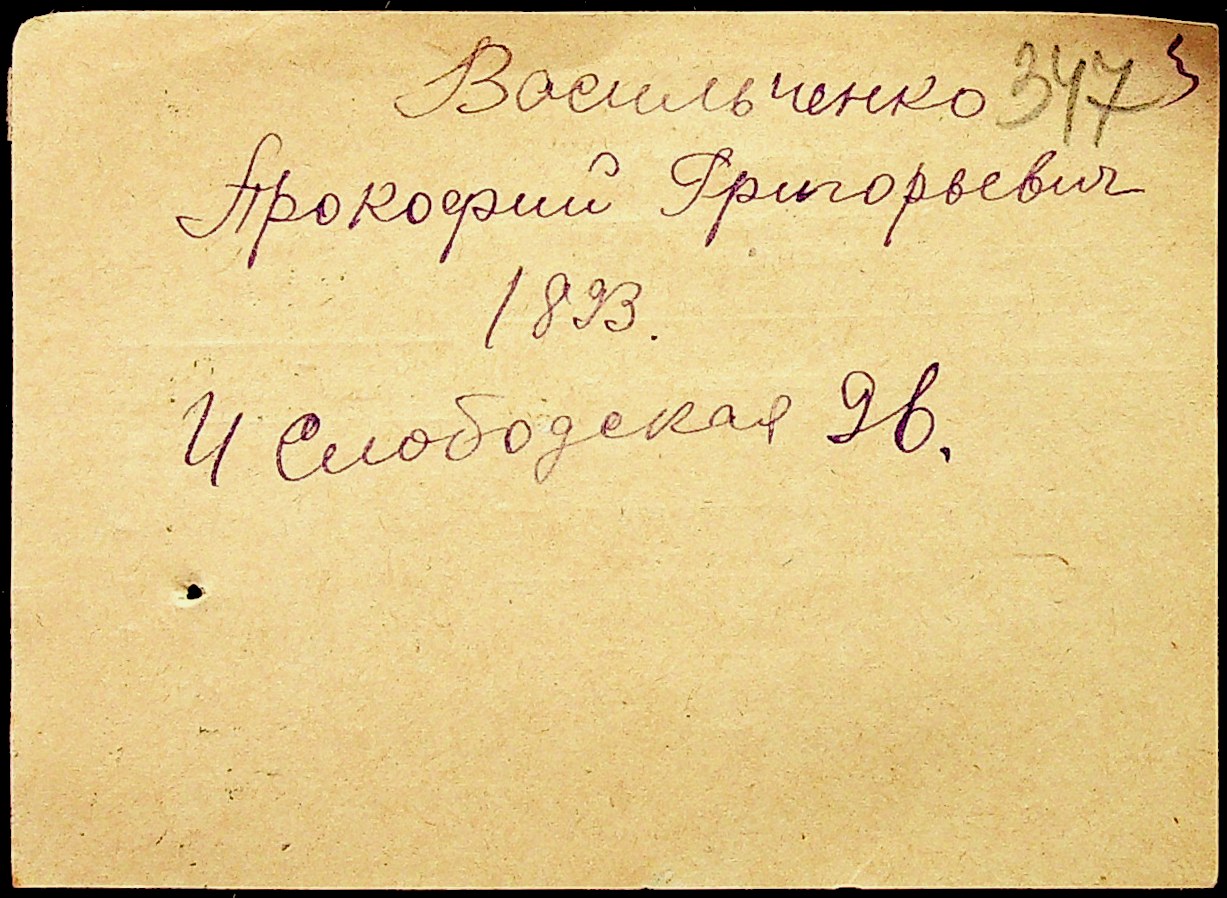 Васильченко 347
Прокофий Григорьевич
1893.
И Слободская 9в.